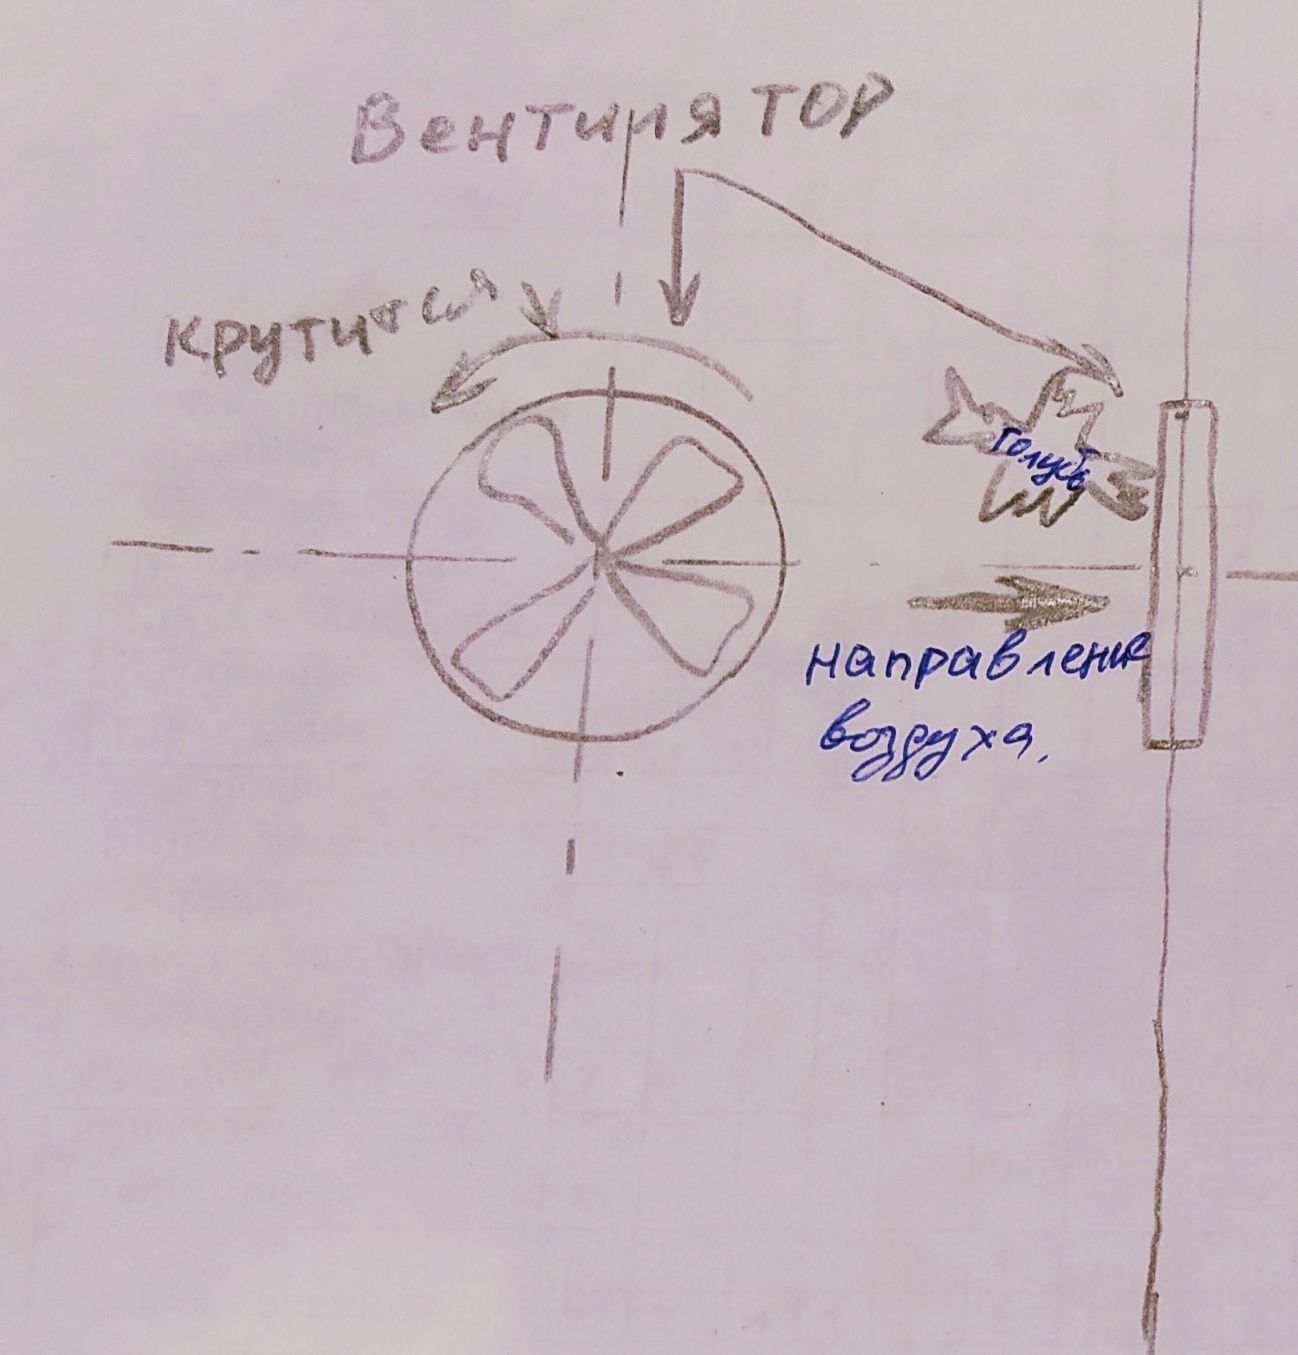 Вентилятор
крутится
голубь
направление
воздуха.